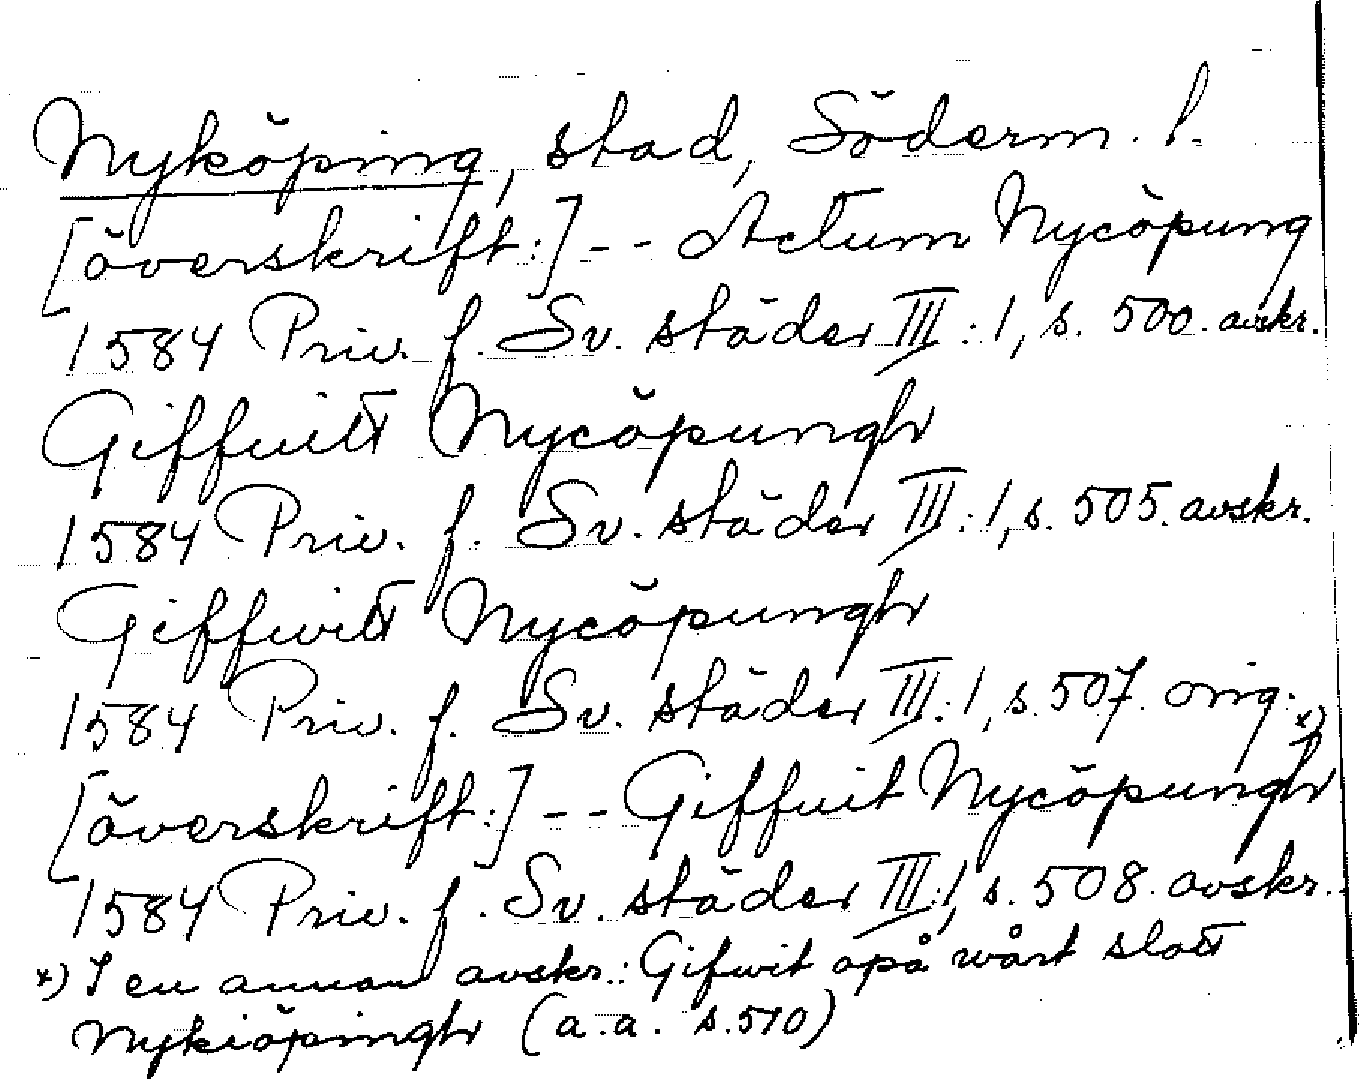 Nyköping, stad, Söderm. l.
[överskrift:] -- Actum Nycöpung
1584 Priv. f. Sv. städer III:1, s. 500. avskr.
Giffuitt Nycöpungh
1584 Priv. f. Sv. städer III:1, s. 505. avskr.
Giffwitt Nycöpungh
1584 Priv. f. Sv. städer III:1, s. 507. orig.
[överskrift:] -- Giffuit Nycöpungh x)
1584 Priv. f. Sv. städer III:1, s. 508. avskr.
x) I en annan avskr.: Gifwit opå wårt slott
Nykiöpingh (a.a. s. 510)